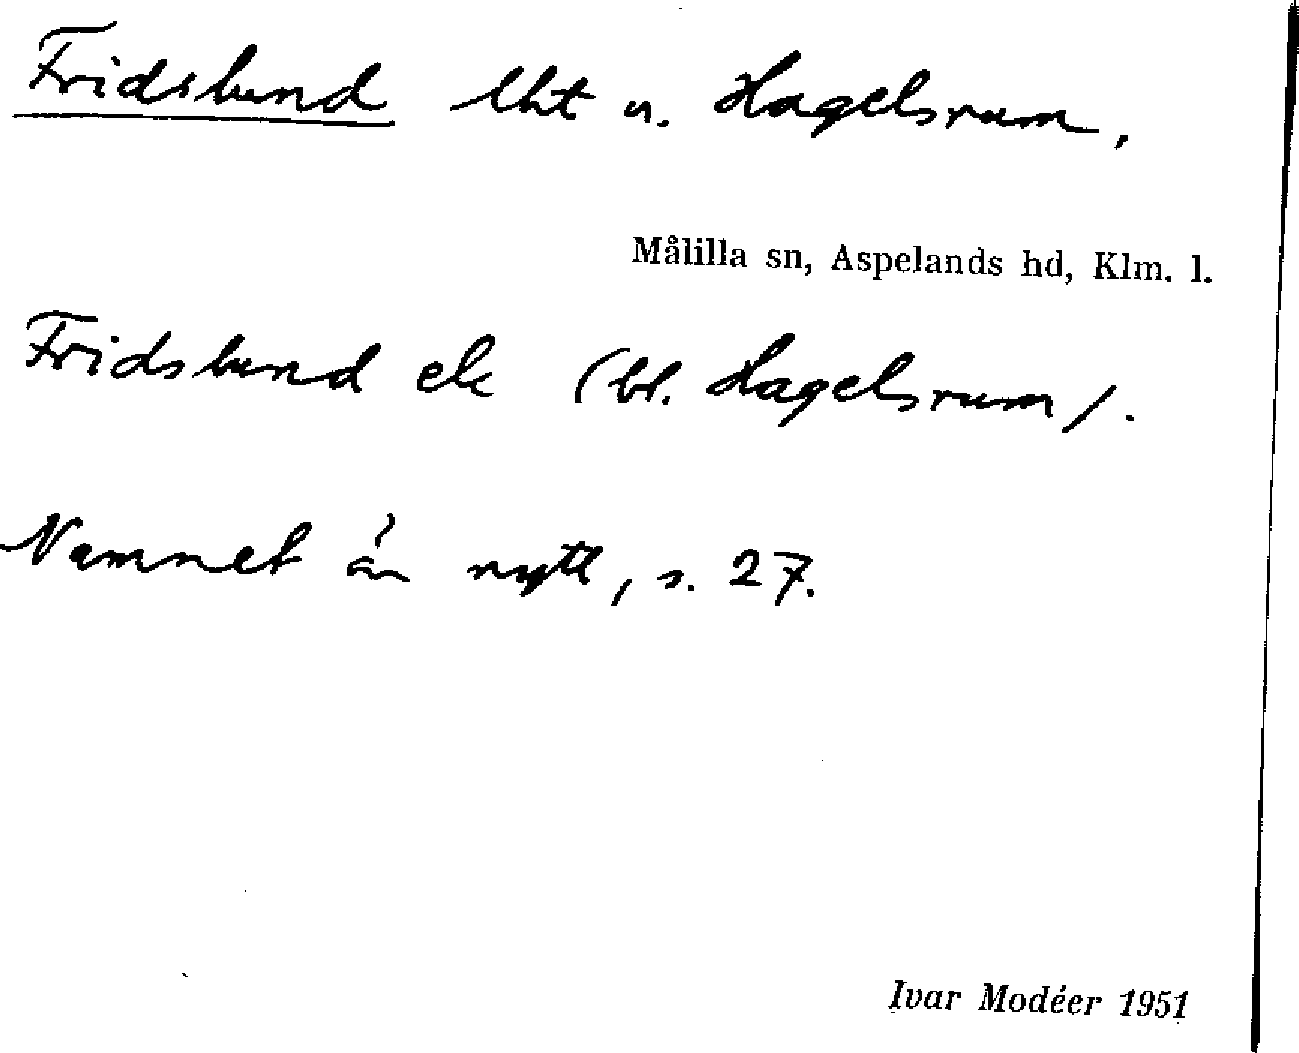 Fridslund lht u. Hagelsrum,
Målilla sn, Aspelands hd, Klm. l.
Fridslund ek (bl. Hagelsrum).
Namnet är nytt, s. 27.
Ivar Modéer 1951